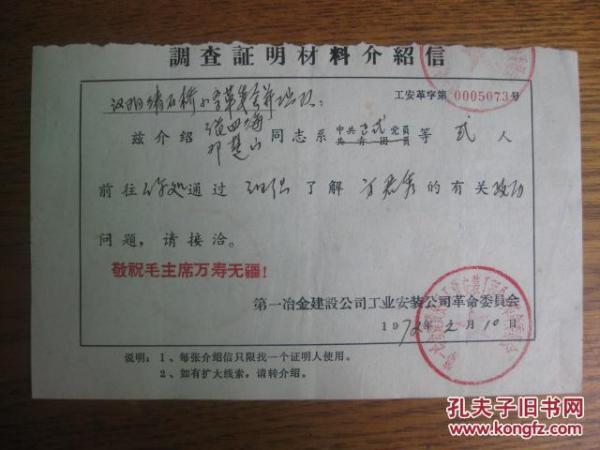 調查証明材料介紹信
工安革字第 0005073 号
兹介绍 同志系 中共正式党员 共青团员 等 贰 人
前往 你处 通过 了解 的有关 政历
问题，请接洽。
敬祝毛主席万寿无疆！
第一冶金建設公司工业安装公司革命委員会
1972年2月10日
説明：1、每张介绍信只限找一个证明人使用。
2、如有扩大线索，请转介绍。
孔夫子旧书网
KONGFZ.COM